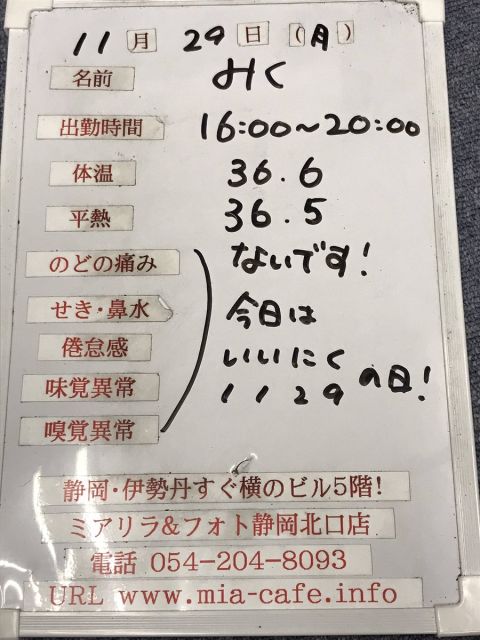 11月 29日 (月)
名前 みく
出勤時間 16:00~20:00
体温 36.6
平熱 36.5
のどの痛み ないです!
せき・鼻水 今日は
倦怠感 いいにく
味覚異常 1129の日!
嗅覚異常
静岡・伊勢丹すぐ横のビル5階!
ミアリラ&フォト静岡北口店
電話 054-204-8093
URL www.mia-cafe.info